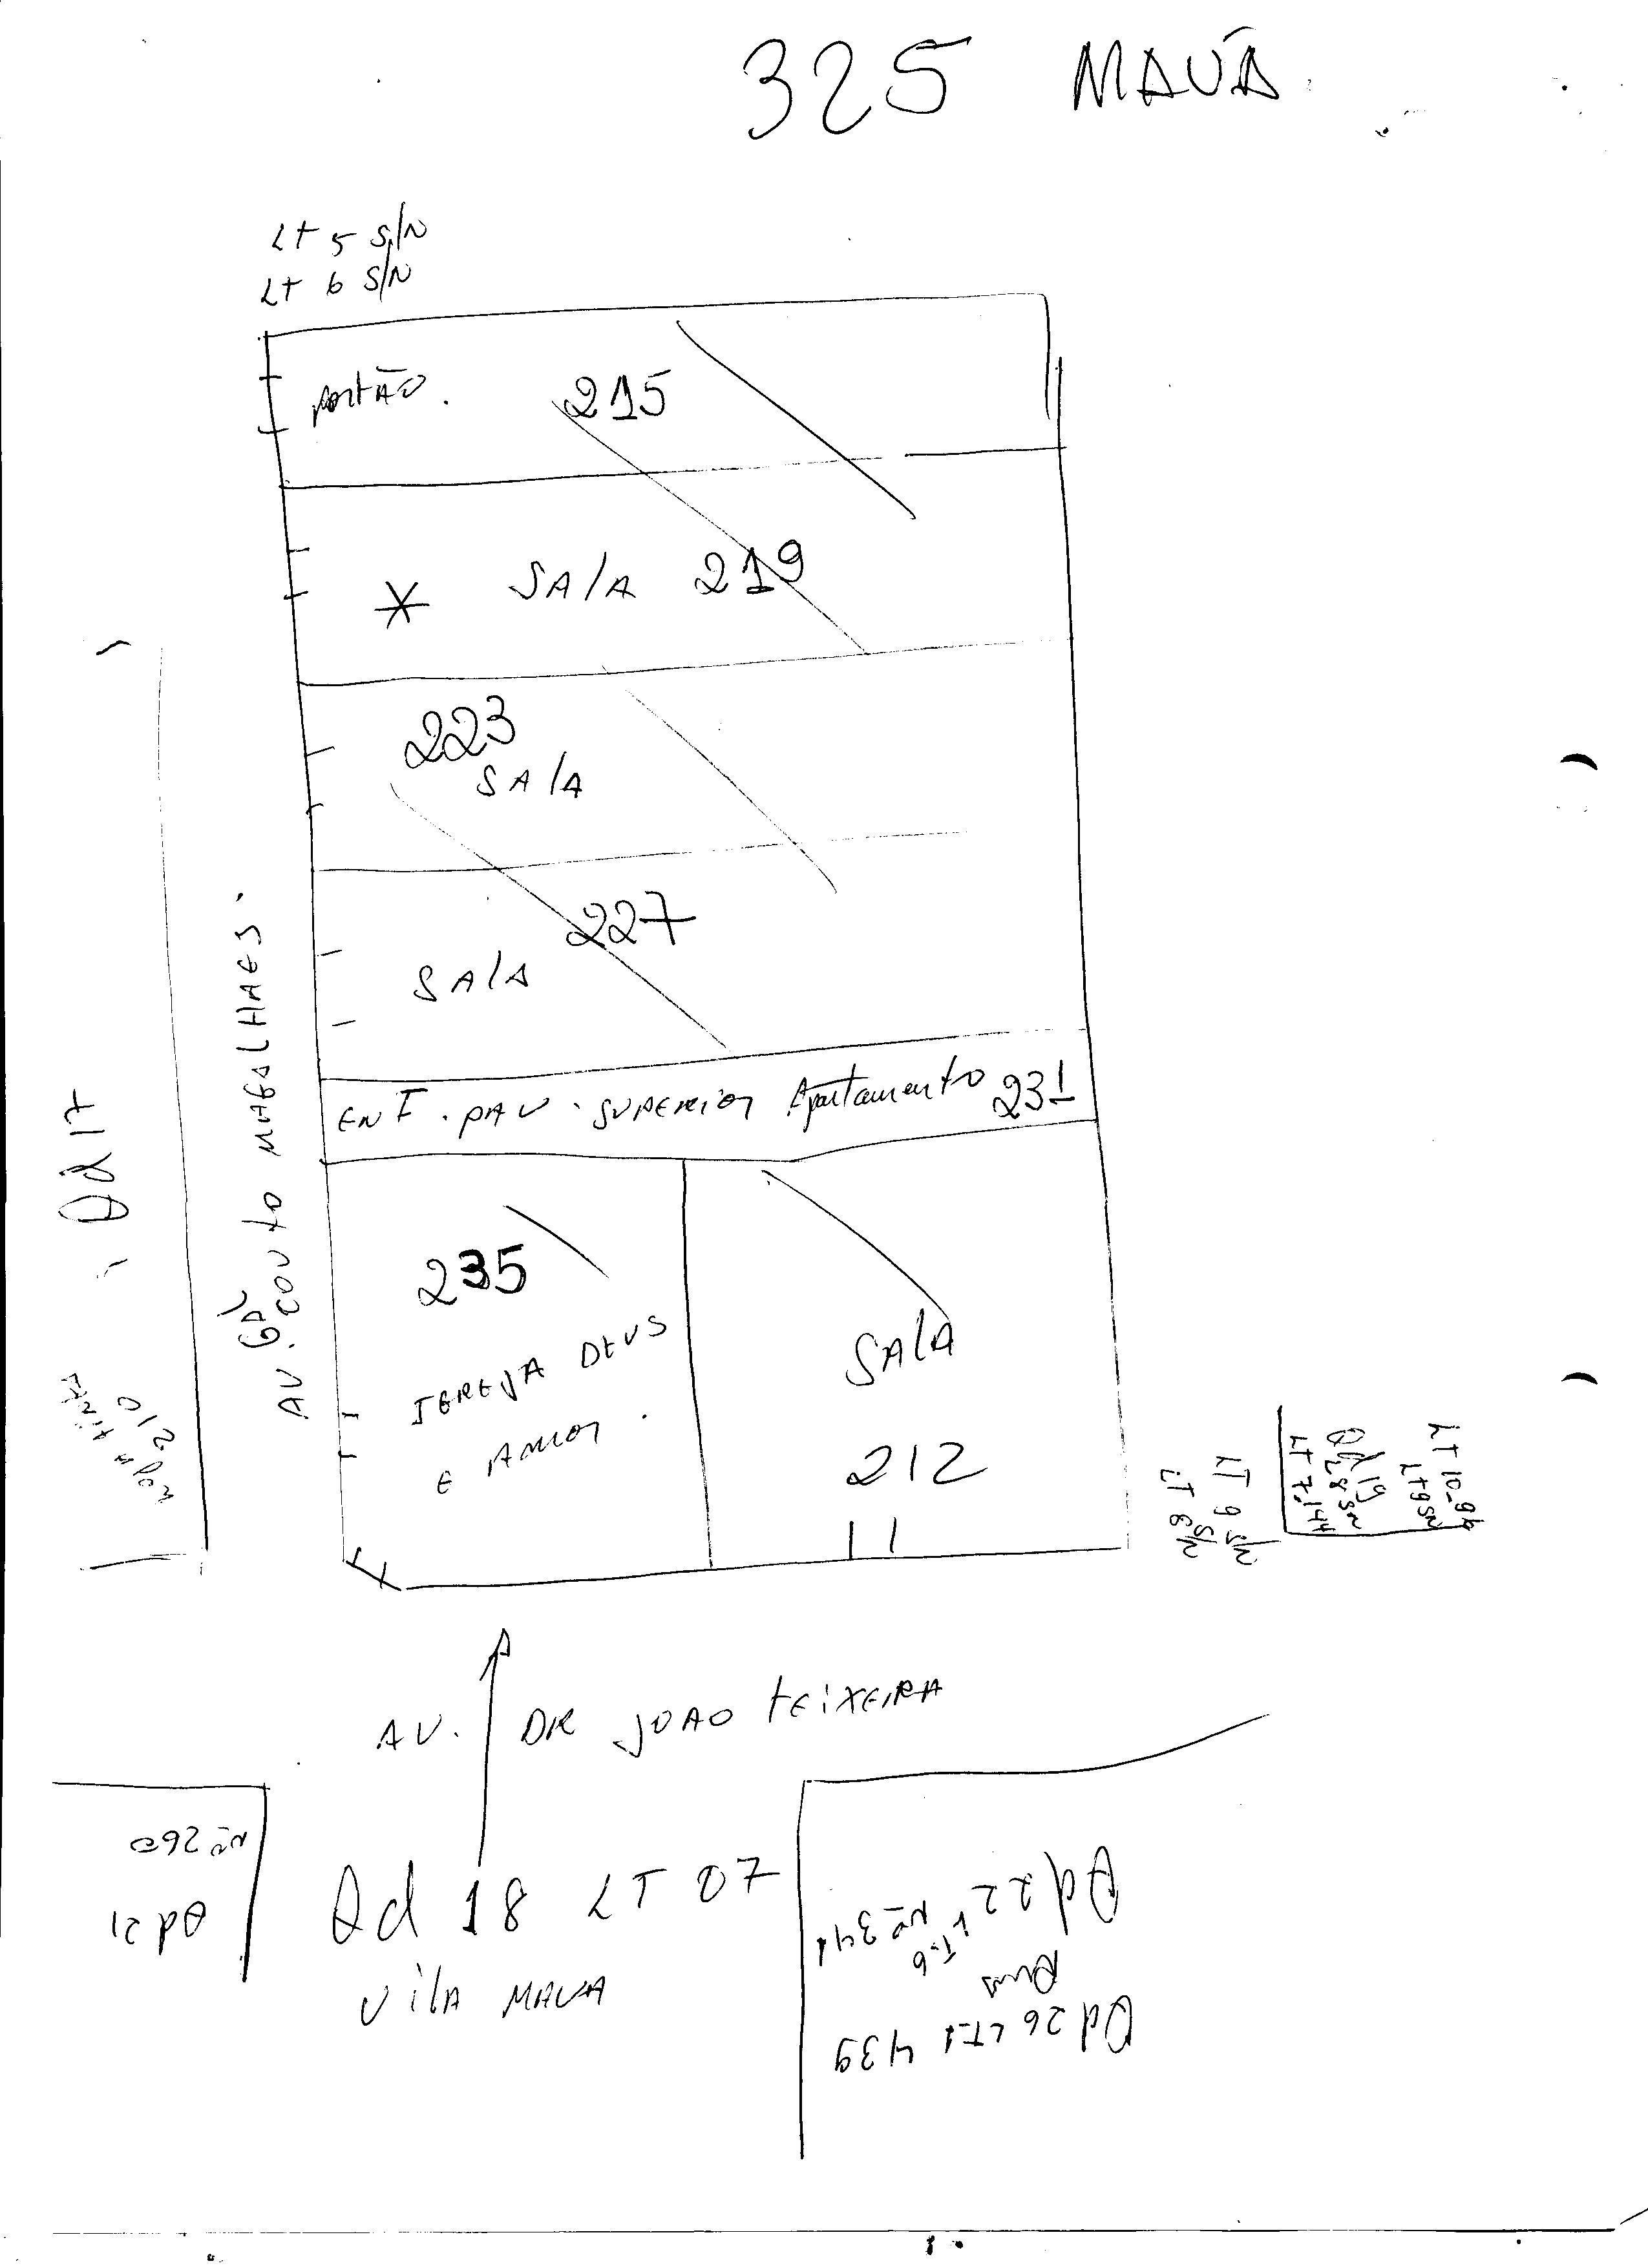 325 MAUÁ
LT 5 S/N
LT 6 S/N
PORTÃO. 215
* SALA 219
223
SALA
227
SALA
ENT. PAV. SUPERIOR Apartamento 231
235
IGREJA DEUS
E AMOR.
SALA
212
Qd 17
210
AV. COUTO MAGALHAES.
GAL
LT 8 S/N
LT 9 S/N
LT 7-144
L8 SN
Qd 19
LT 9 SN
LT 10-96
AV. DR JOAO TEIXEIRA
Nº 260
Qd 21
Qd 18 LT 07
VILA MAUA
Qd 22 LT-6
Nº 341
Qd 26 LT-1 439